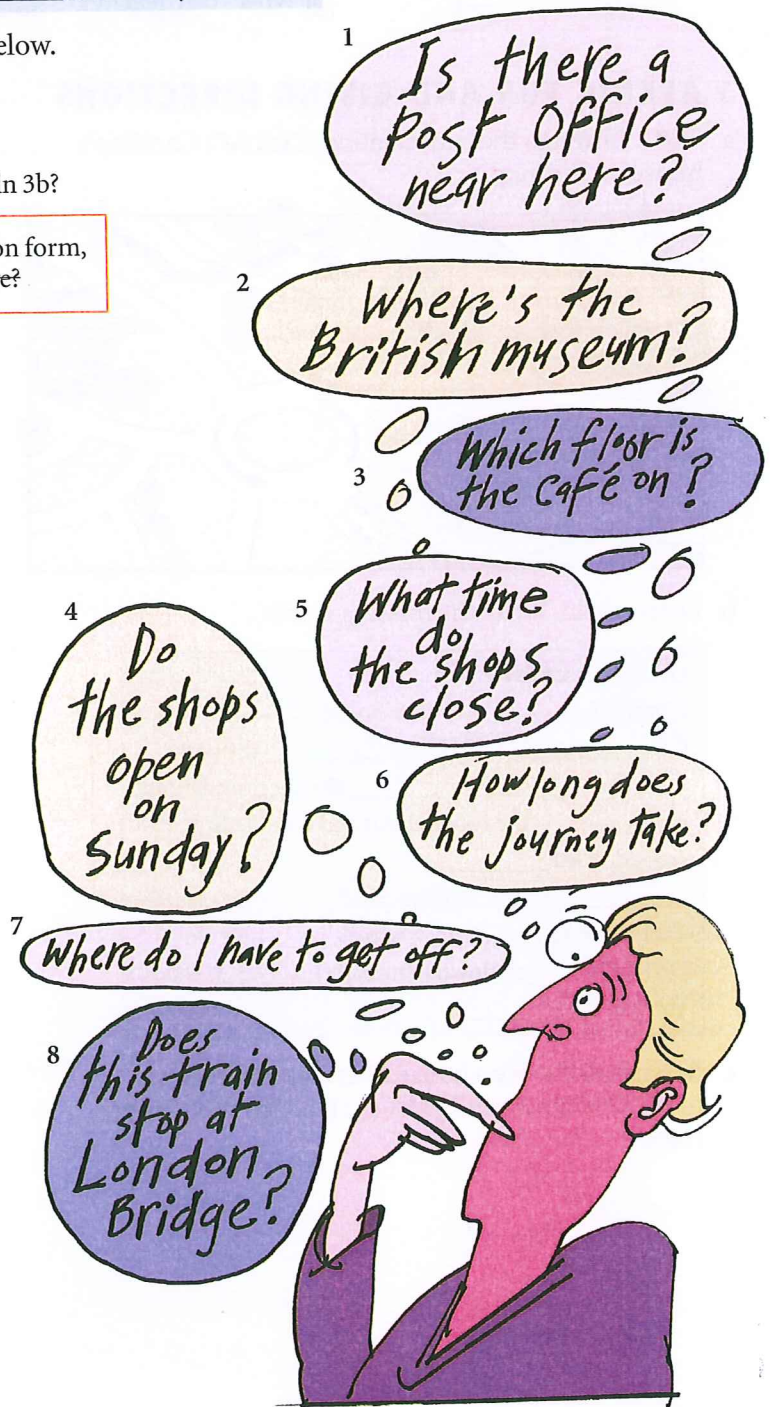 elow.
in 3b?
on form,
e?
1
Is there a
post Office
near here?
2
Where's the
British museum?
3
Which floor is
the Café on?
4
Do
the shops
open
on
Sunday?
5
What time
do
the shops
close?
6
How long does
the journey take?
7
Where do I have to get off?
8
Does
this train
stop at
London
Bridge?